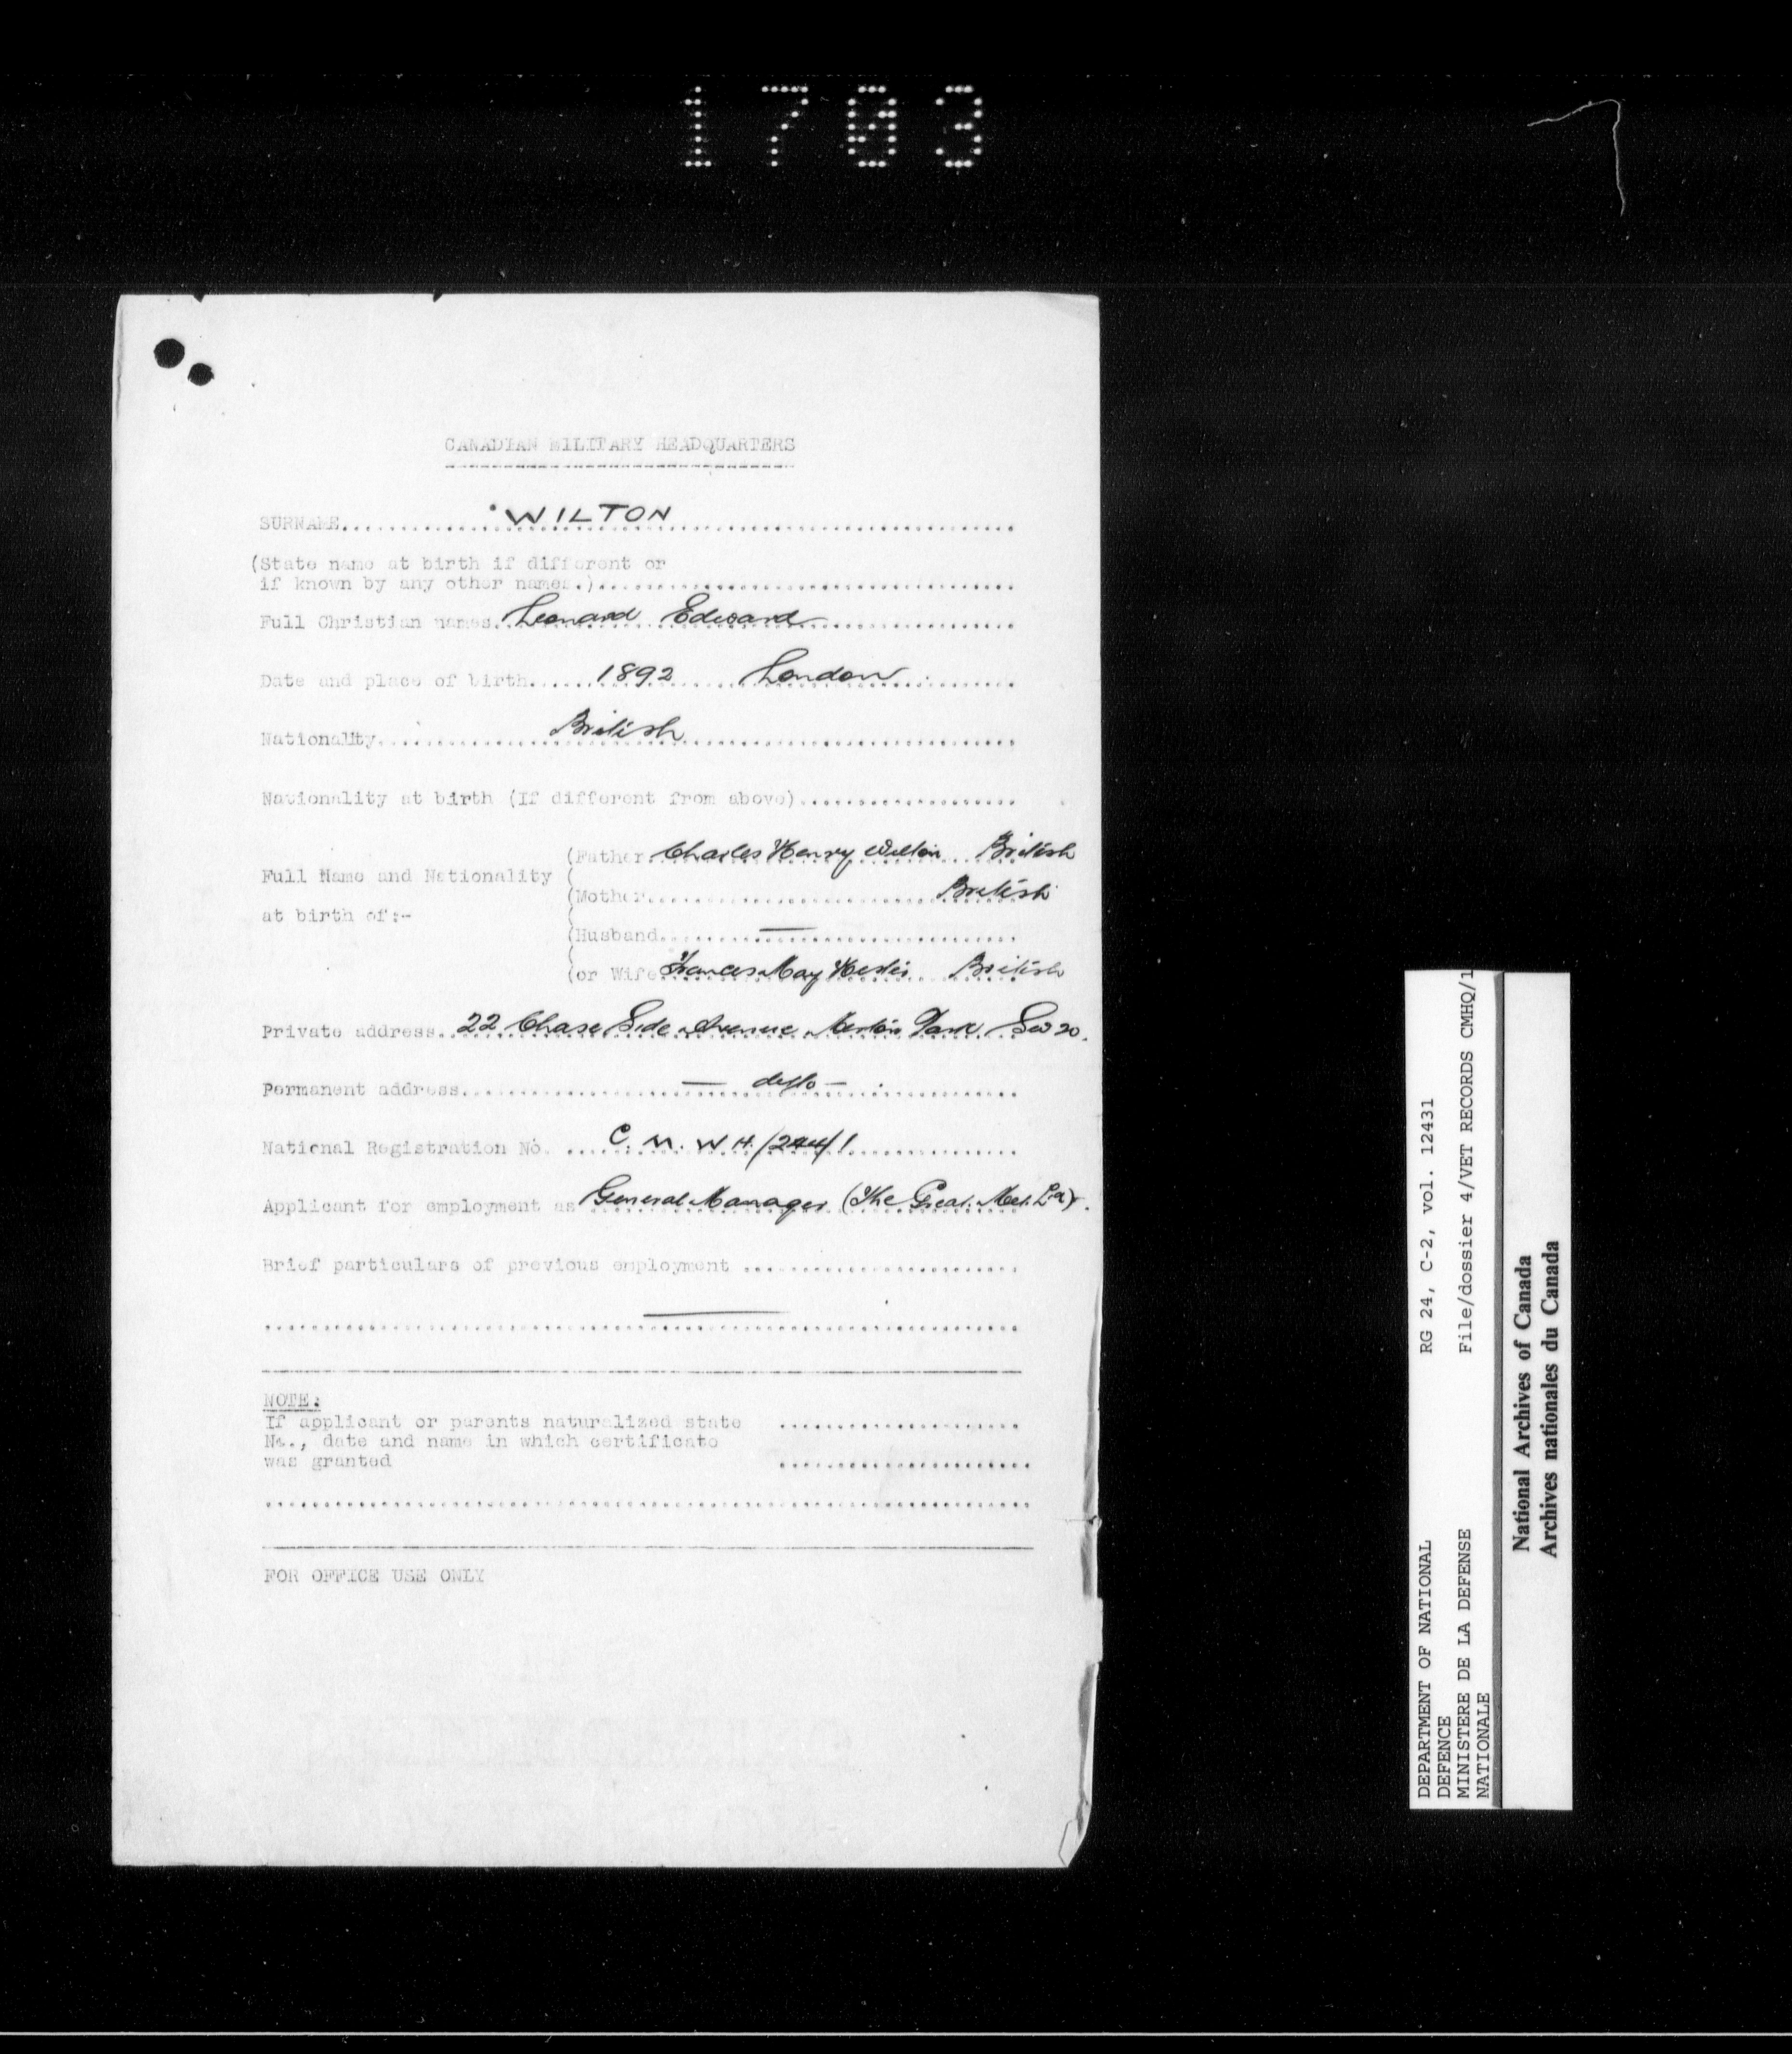 1703
CANADIAN MILITARY HEADQUARTERS
SURNAME.............WILTON
(State name at birth if different or
if known by any other names.)
Full Christian names. Leonard Edward
Date and place of birth..... 1892 London
Nationality. British
Nationality at birth (If different from above)
(Father. Charles Henry Wilton British
Full Name and Nationality (
(Mother. British
at birth of:- (
(Husband. —
(
(or Wife Frances May British
Private address. 22 Chase Side Avenue Merton Park SW 20.
Permanent address. — ditto —
National Registration No. C. M. W H./244/1
Applicant for employment as General Manager (The Great Met. Ld).
Brief particulars of previous employment
NOTE:
If applicant or parents naturalized state
No., date and name in which certificate
was granted
FOR OFFICE USE ONLY
DEPARTMENT OF NATIONAL RG 24, C-2, vol. 12431
DEFENCE
MINISTERE DE LA DEFENSE File/dossier 4/VET RECORDS CMHQ/1
NATIONALE
National Archives of Canada
Archives nationales du Canada